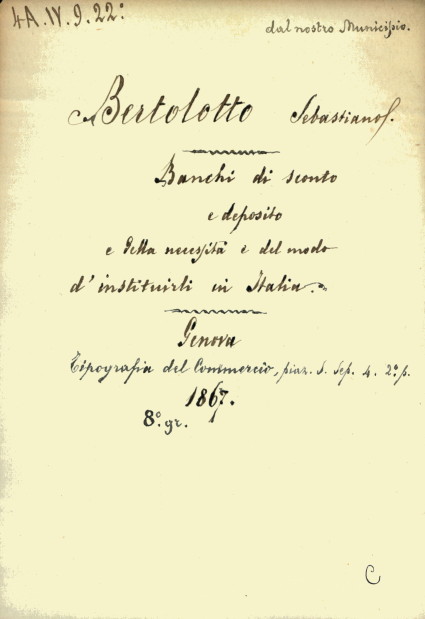 4A.IV.9.22:
dal nostro Municipio.
Bertolotto Sebastiano S.
Banchi di sconto
e deposito
e della necessità e del modo
d'instituirli in Italia.
Genova
Tipografia del Commercio, piaz. S. Sep. 4. 2° p.
1867.
8.° gr.
C